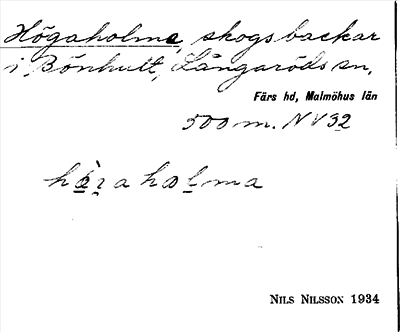 Högaholma, skogsbackar
i Bönhult, Långaröds sn.
Färs hd, Malmöhus län
500 m. NV 32
NILS NILSSON 1934